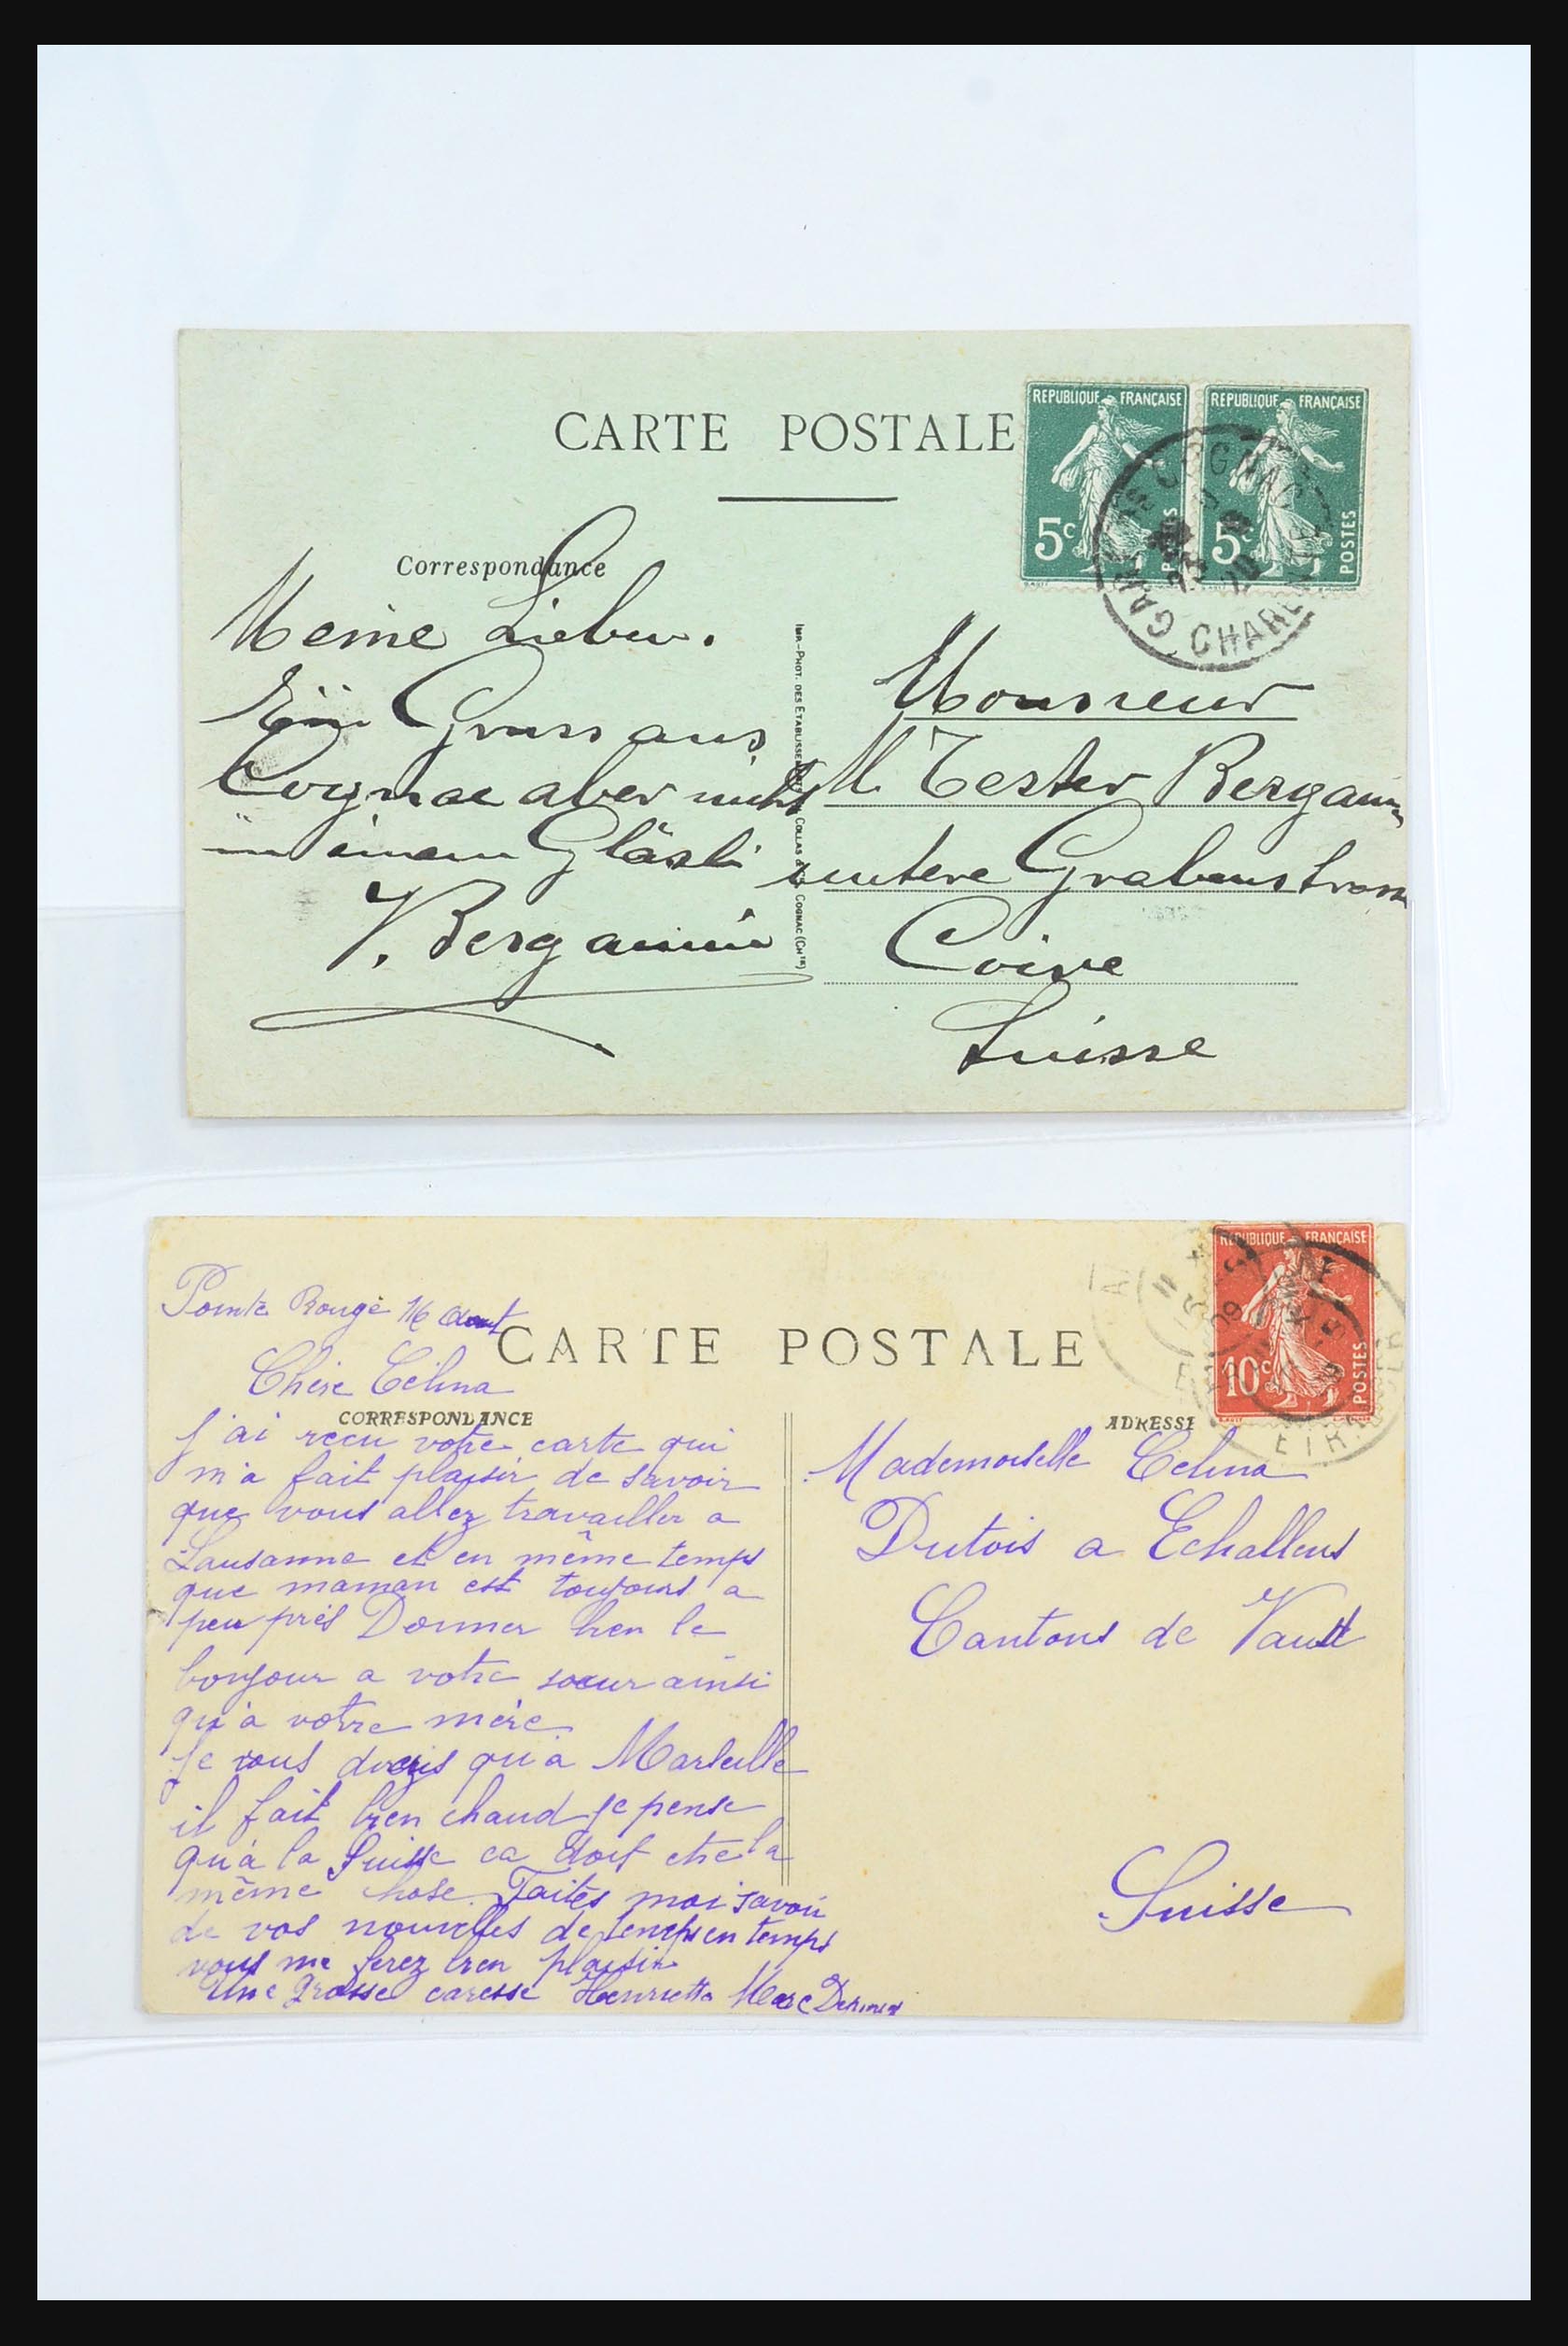 CARTE POSTALE
REPUBLIQUE FRANÇAISE
5c
POSTES
REPUBLIQUE FRANÇAISE
5c
POSTES
GARE DE COGNAC
CHARENTE
Correspondance
Meine Lieben.
Grussaus
Cognac aber nicht
in einem Gläsli
V. Bergamin
IMP.-PHOT. DES ETABLISSEMENTS COLLAS & Cie COGNAC (CHte)
Monsieur
M Tester Bergamin
untere Grabenstrasse
Coire
Suisse
Pointe Rouge 16 Aout
CARTE POSTALE
REPUBLIQUE FRANÇAISE
10c
POSTES
Chère Célina
CORRESPONDANCE
ADRESSE
J'ai recu votre carte qui
m'a fait plaisir de savoir
que vous allez travailler a
Lausanne et en même temps
que maman est toujours a
peu près Donner bien le
bonjour a votre soeur ainsi
qu'à votre mère
Je vous dirais qu'a Marseille
il fait bien chaud je pense
qu'à la Suisse ca doit etre la
même chose Faites moi savoir
de vos nouvelles de temps en temps
vous me ferez bien plaisir
Une grosse caresse Henrietta Marc
Mademoiselle Celina
Dutois a Echallens
Cantons de Vault
Suisse